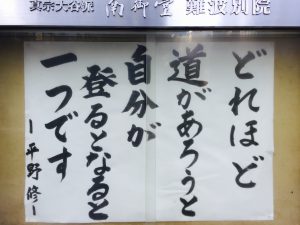 真宗大谷派 南御堂 難波別院
どれほど
道があろうと
自分が
登るとなると
一つです
ー平野修ー